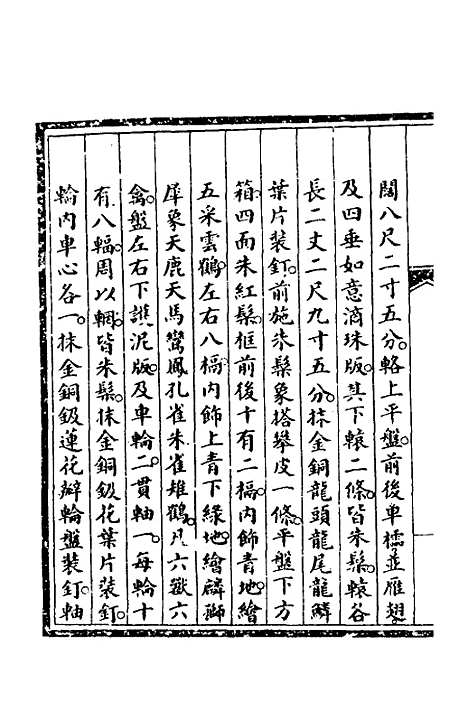 闊八尺二寸五分輅上平盤前後車櫺並雁翅
及四垂如意滴珠版其下轅二條皆朱髹轅各
長二丈二尺九寸五分抹金銅龍頭龍尾龍鱗
葉片裝釘前施朱髹象搭攀皮一條平盤下方
箱四面朱紅髹框前後十有二槅内飾青地繪
五采雲鶴左右八槅内飾上青下綠地繪麟獅
犀象天鹿天馬鸞鳳孔雀朱雀雉鶴凡六獸六
禽盤左右下護泥版及車輪二貫軸一每輪十
有八輻周以輞皆朱髹抹金銅鈒花葉片裝釘
輪内車心各一抹金銅鈒蓮花瓣輪盤裝釘軸